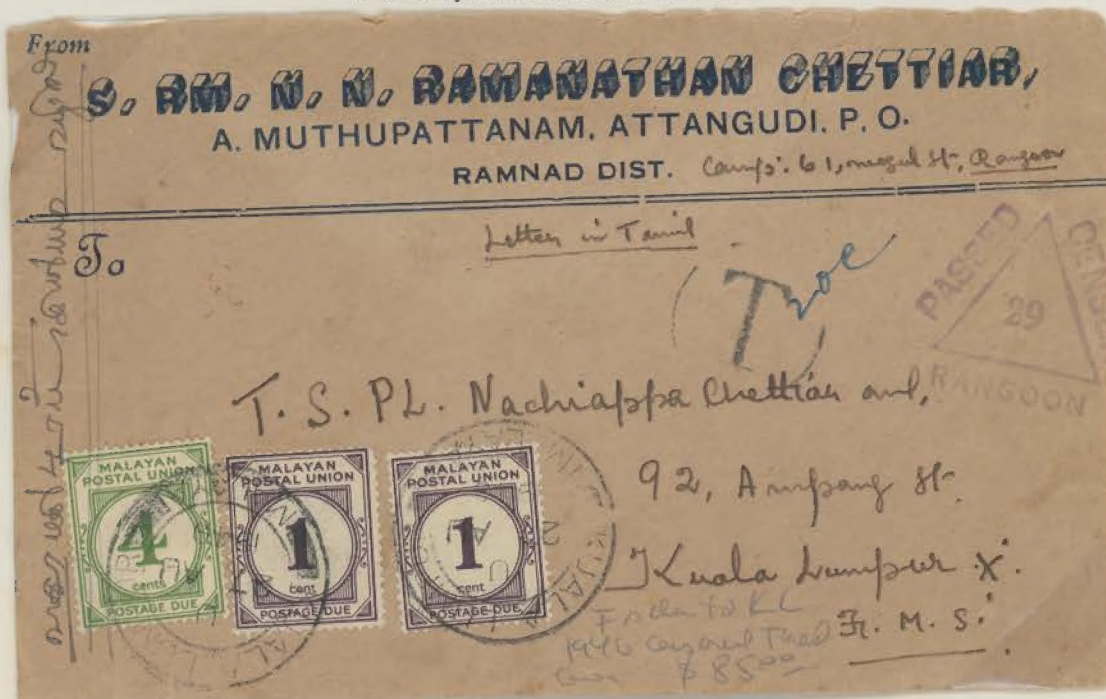 From
S. RM. N. N. RAMANATHAN CHETTIAR,
A. MUTHUPATTANAM, ATTANGUDI. P. O.
RAMNAD DIST. Camp: 61, mogul St, Rangoon
Letter in Tamil
To
T 20c
PASSED
CENSOR
29
RANGOON
T. S. PL. Nachiappa Chettiar and,
92, Ampang St.
Kuala Lumpur X.
F. M. S.
MALAYAN POSTAL UNION
4
cents
POSTAGE DUE
MALAYAN POSTAL UNION
1
cent
POSTAGE DUE
MALAYAN POSTAL UNION
1
cent
POSTAGE DUE
to KL
$ 85.00